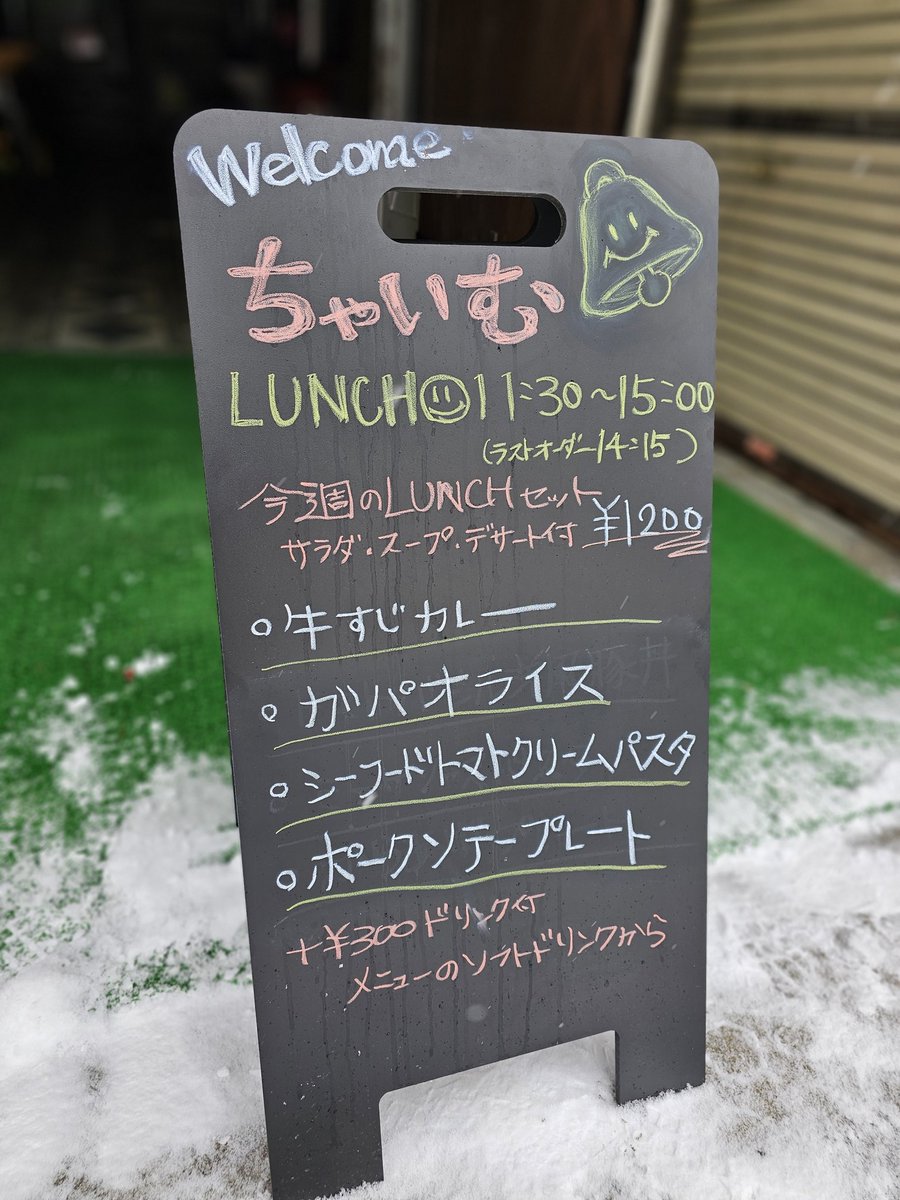 Welcome
ちゃいむ
LUNCH 11:30～15:00
(ラストオーダー14:15)
今週のLUNCHセット
サラダ・スープ・デザート付 ¥1200
○牛すじカレー
○ガパオライス
○シーフードトマトクリームパスタ
○ポークソテープレート
+¥300ドリンク付
メニューのソフトドリンクから